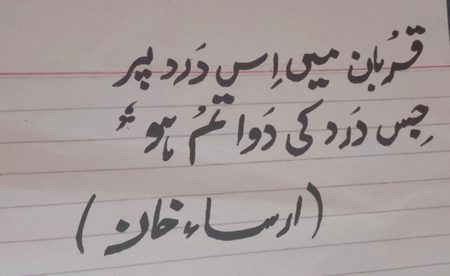 قُربان میں اِس دَرد پر
جِس دَرد کی دَوا تمُ ہو
(ارساء خان)